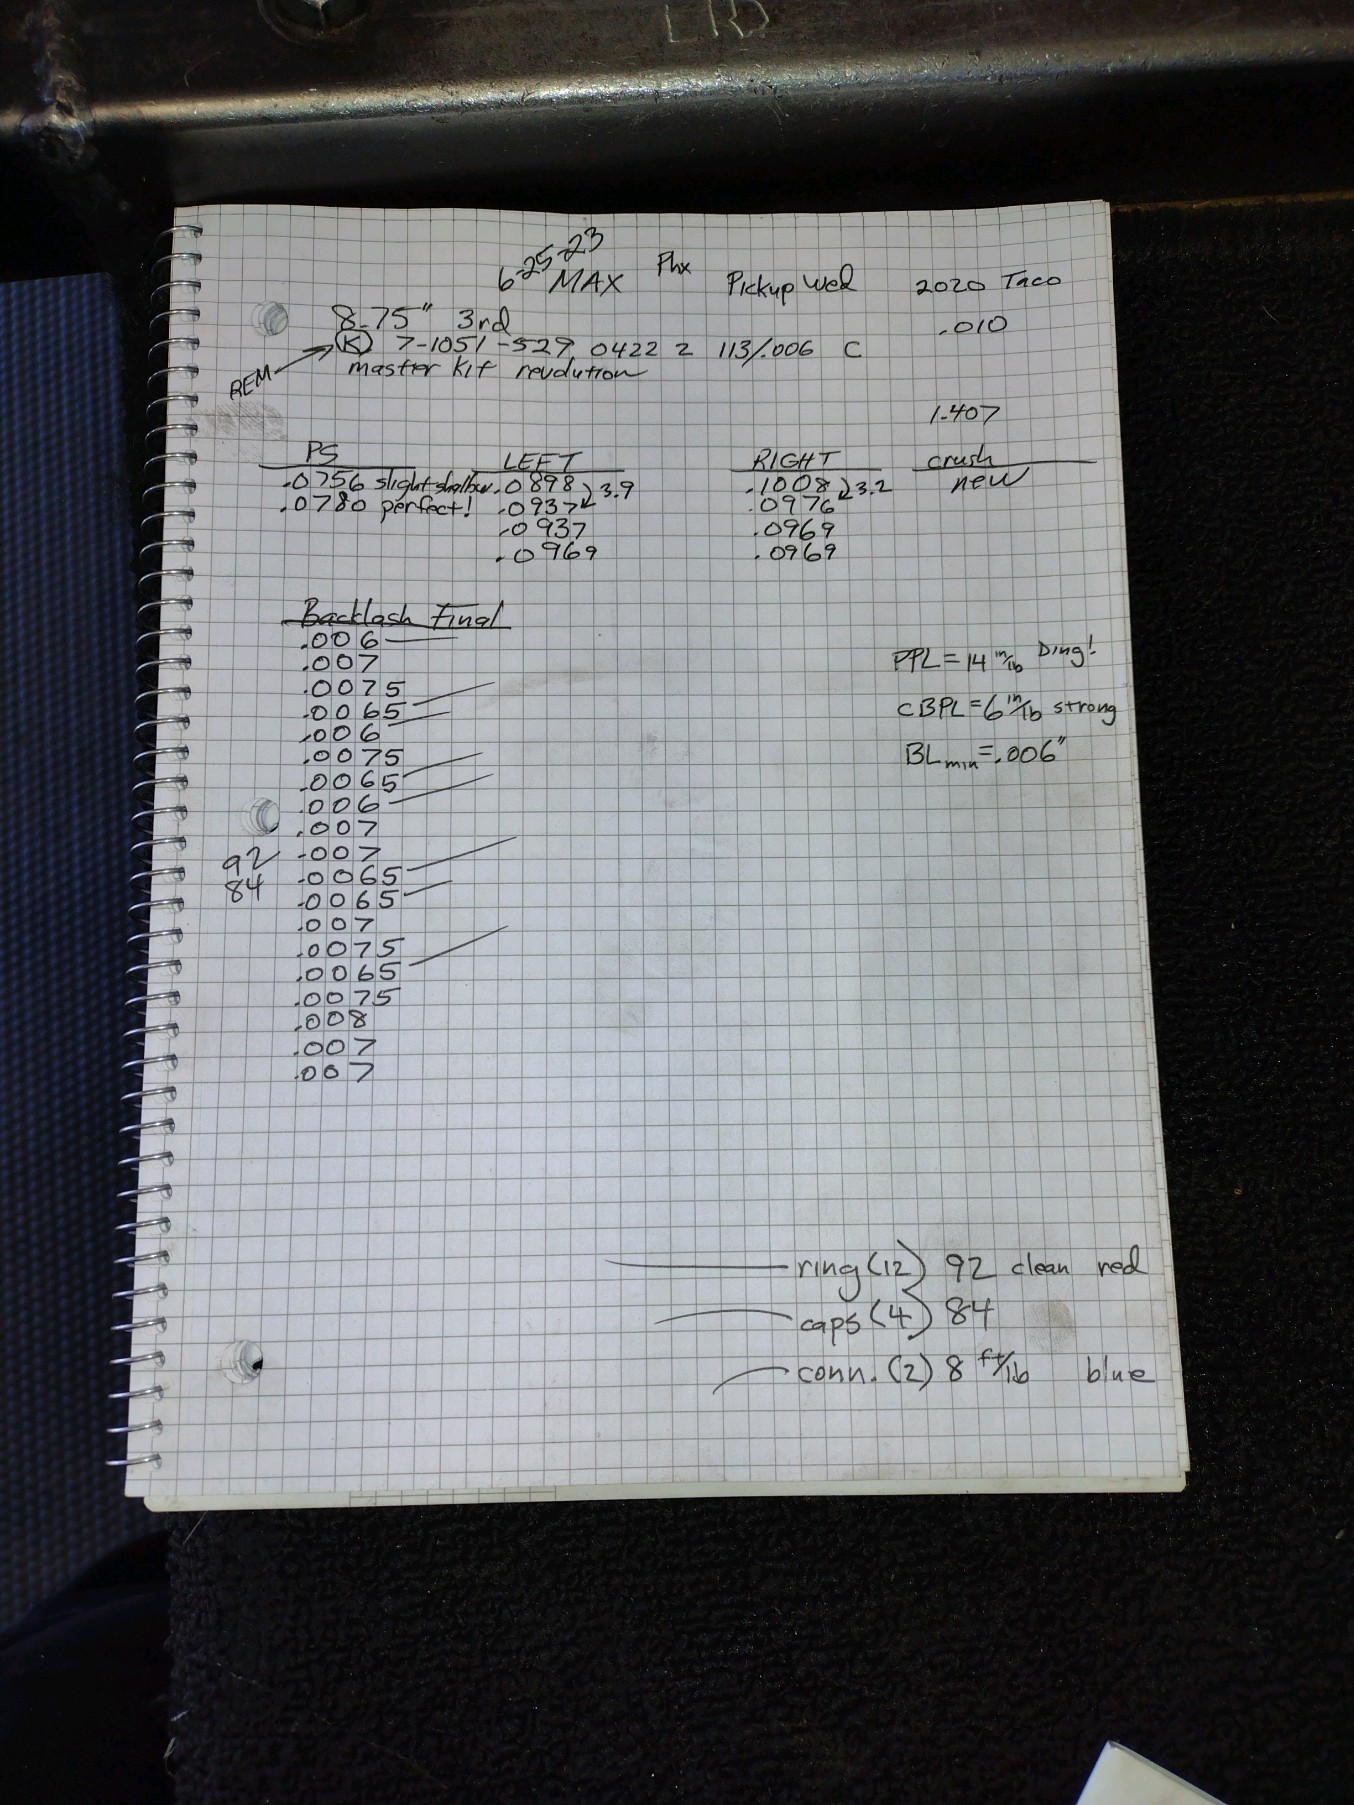 LRD
6-25-23
MAX Phx Pickup Wed 2020 Taco
8.75" 3rd .010
REM K 7-1051-529 0422 2 113/.006 C
master kit revolution
1.407
PS LEFT RIGHT crush
.0756 slight shallow .0898 3.9 .1008 3.2 new
.0780 perfect! .0937 .0976
.0937 .0969
.0969 .0969
Backlash Final
.006
.007
.0075
.0065
.006
.0075
.0065
.006
.007
92 .007
84 .0065
.0065
.007
.0075
.0065
.0075
.008
.007
.007
PPL = 14 in/lb Ding!
CBPL = 6 in/lb strong
BL min = .006"
ring (12) 92 clean red
caps (4) 84
conn. (2) 8 ft/lb blue